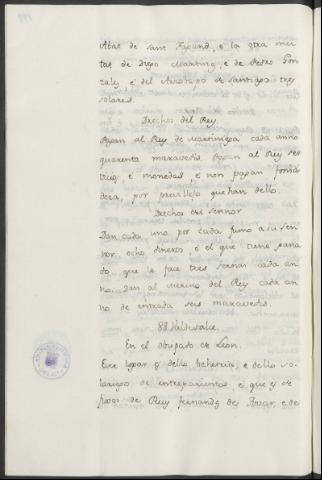 Abat de Sant Fagund, e la otra mei-
tat de Diego Martinez, e de Pedro Gon-
zalez, e del Arzobispo de Santiago tres
solares.
Drechos del Rey.
Pagan al Rey de Martiniega cada anno
quarenta maravedis. Pagan al Rey ser-
vicios, e monedas, e non pagan fonsa-
dera, por privillejo que han dello.
Drechos del sennor
Dan cada uno por cada fumo a su sen-
nor ocho dineros, e el que tiene gana-
do que la face tres sernas cada an-
no. Dan al merino del Rey cada an-
no de entrada seis maravedis.
88
En el obispado de Leon.
Este logar es dello behetria, e dello so-
lariego de entrepartimientos, e que es de
fijos de Ruy Fernandez de Tovar, e de